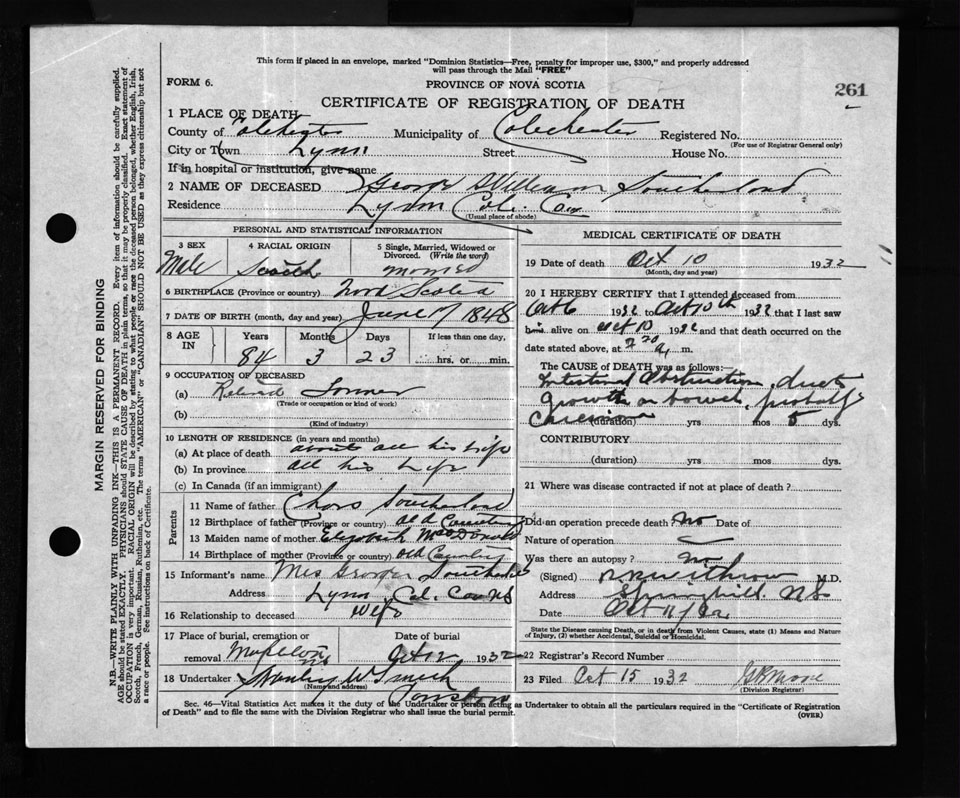 This form if placed in an envelope, marked "Dominion Statistics—Free, penalty for improper use, $300," and properly addressed
will pass through the Mail "FREE"
FORM 6.
PROVINCE OF NOVA SCOTIA
261
CERTIFICATE OF REGISTRATION OF DEATH
1 PLACE OF DEATH
County of Colchester Municipality of Colechester Registered No.
(For use of Registrar General only)
City or Town Lynn Street House No.
If in hospital or institution, give name
2 NAME OF DECEASED George William Southerland
Residence Lynn Col. Co
(Usual place of abode)
PERSONAL AND STATISTICAL INFORMATION
3 SEX 4 RACIAL ORIGIN 5 Single, Married, Widowed or
Divorced. (Write the word)
Male Scotch Married
6 BIRTHPLACE (Province or country) Nova Scotia
7 DATE OF BIRTH (month, day and year) June 17 1848
8 AGE IN Years Months Days If less than one day,
84 3 23 hrs. or min.
9 OCCUPATION OF DECEASED
(a) Retired
(Trade or occupation or kind of work)
(b)
(Kind of industry)
10 LENGTH OF RESIDENCE (in years and months)
(a) At place of death about all his life
(b) In province all his Life
(c) In Canada (if an immigrant)
Parents
11 Name of father Southerland
12 Birthplace of father (Province or country) Old Country
13 Maiden name of mother Elizabeth MacDonald
14 Birthplace of mother (Province or country) Old Country
15 Informant's name Mrs George Southerland
Address Lynn Col. Co NS
16 Relationship to deceased Wife
17 Place of burial, cremation or Date of burial
removal Mapleton NS Oct 12 1932
18 Undertaker Stanley W Smith
(Name and address)
MEDICAL CERTIFICATE OF DEATH
19 Date of death Oct 10 1932
(Month, day and year)
20 I HEREBY CERTIFY that I attended deceased from
Oct 6 1932 to Oct 10th 1932 that I last saw
him alive on Oct 10 1932 and that death occurred on the
date stated above, at 7 20 a, m.
The CAUSE OF DEATH was as follows:
Intestinal Obstruction, due to
growth on bowel, probably
Carcinoma (duration) yrs mos 5 dys.
CONTRIBUTORY
(duration) yrs mos dys.
21 Where was disease contracted if not at place of death?
Did an operation precede death? No Date of
Nature of operation
Was there an autopsy? No
(Signed) Withrow M.D.
Address Springhill NS
Date Oct 11/32
State the Disease causing Death, or in death from Violent Causes, state (1) Means and Nature
of Injury, (2) whether Accidental, Suicidal or Homicidal.
22 Registrar's Record Number
23 Filed Oct 15 1932
(Division Registrar)
Sec. 46—Vital Statistics Act makes it the duty of the Undertaker or person acting as Undertaker to obtain all the particulars required in the "Certificate of Registration
of Death" and to file the same with the Division Registrar who shall issue the burial permit.
(OVER)
MARGIN RESERVED FOR BINDING
N.B.—WRITE PLAINLY WITH UNFADING INK—THIS IS A PERMANENT RECORD. Every item of information should be carefully supplied.
AGE should be stated EXACTLY. PHYSICIANS should STATE CAUSE OF DEATH in plain terms, so that it may be properly classified. Exact statement of
OCCUPATION is very important. RACIAL ORIGIN will be described by stating to what people or race the deceased person belonged, whether English, Irish,
Scotch, French, German, Russian, Ruthenian, etc. The terms "AMERICAN" or "CANADIAN" SHOULD NOT BE USED as they express citizenship but not
a race or people. See instructions on back of Certificate.